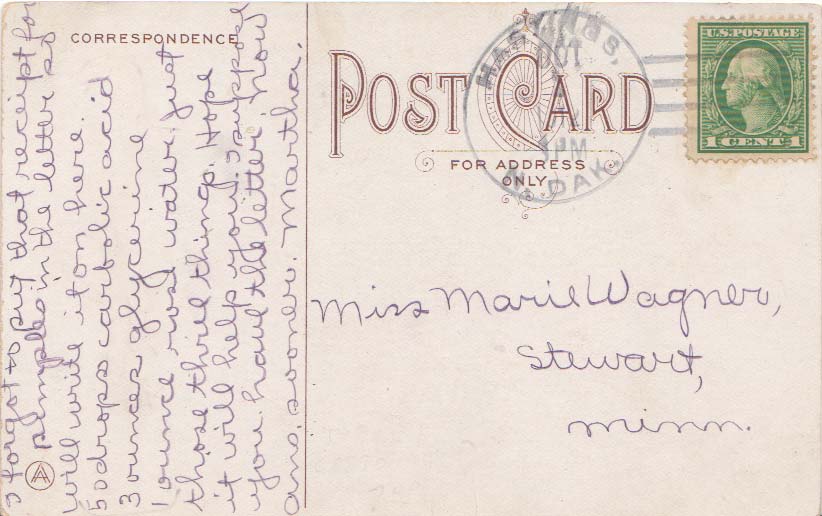 CORRESPONDENCE
POST CARD
FOR ADDRESS
ONLY
OCT
PM
N. DAK.
U.S. POSTAGE
1 CENT 1
I forgot to put that receipt for
pimples in the letter so
will write it on here.
50 drops carbolic acid
3 ounces glycerine
1 ounce rose water. just
those three things. Hope
it will help you. I suppose
you have the letter now
ans. sooner. Martha.
Miss Marie Wagner,
Stewart,
Minn.